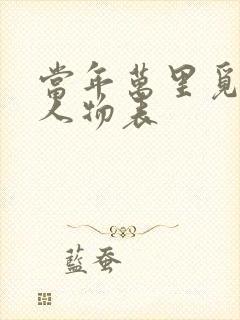 當年萬里覓
人物表
藍蚕